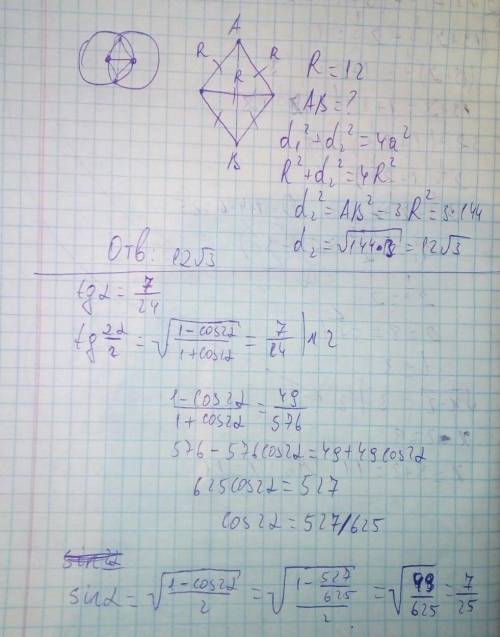 A
R R
R
B
R = 12
AB = ?
d₁² + d₂² = 4a²
R² + d₂² = 4R²
d₂² = AB² = 3R² = 3·144
d₂ = √(144·3) = 12√3
Отв: 12√3
tg α = 7/24
tg 2α/2 = √((1-cos2α)/(1+cos2α)) = 7/24 | ^2
(1-cos2α)/(1+cos2α) = 49/576
576 - 576cos2α = 49 + 49cos2α
625cos2α = 527
cos2α = 527/625
sinα = √((1-cos2α)/2) = √((1-527/625)/2) = √(49/625) = 7/25